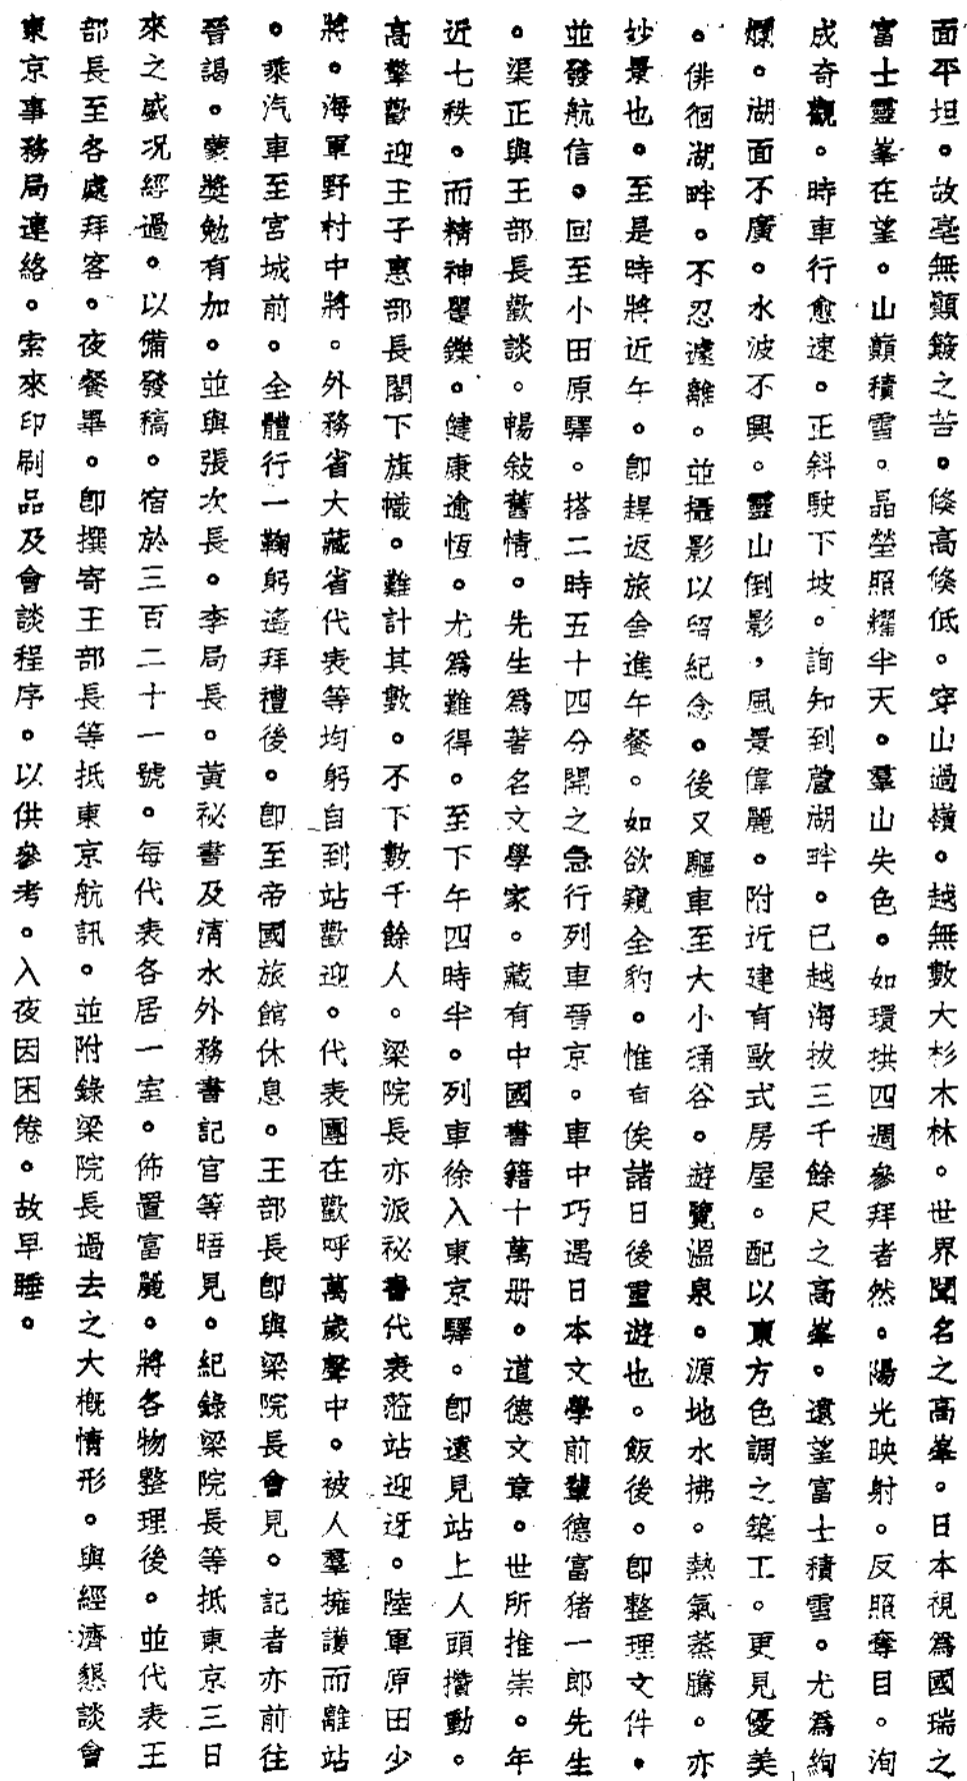 面平坦。故毫無顛簸之苦。倏高倏低。穿山過嶺。越無數大杉木林。世界聞名之高峯。日本視爲國瑞之
富士靈峯在望。山巔積雪。晶瑩照耀半天。羣山失色。如環拱四週參拜者然。陽光映射。反照奪目。洵
成奇觀。時車行愈速。正斜駛下坡。詢知到蘆湖畔。已越海拔三千餘尺之高峯。遠望富士積雪。尤爲絢
爛。湖面不廣。水波不興。靈山倒影，風景偉麗。附近建有歐式房屋。配以東方色調之築工。更見優美
。俳徊湖畔。不忍遽離。並攝影以留紀念。後又驅車至大小涌谷。遊覽溫泉。源地水拂。熱氣蒸騰。亦
妙景也。至是時將近午。卽趕返旅舍進午餐。如欲窺全豹。惟有俟諸日後重遊也。飯後。卽整理文件。
並發航信。回至小田原驛。搭二時五十四分開之急行列車晉京。車中巧遇日本文學前輩德富猪一郎先生
。渠正與王部長歡談。暢敍舊情。先生爲著名文學家。藏有中國書籍十萬册。道德文章。世所推崇。年
近七秩。而精神矍鑠。健康逾恆。尤爲難得。至下午四時半。列車徐入東京驛。卽遠見站上人頭攢動。
高擎歡迎王子惠部長閣下旗幟。難計其數。不下數千餘人。梁院長亦派秘書代表蒞站迎迓。陸軍原田少
將。海軍野村中將。外務省大藏省代表等均躬自到站歡迎。代表團在歡呼萬歲聲中。被人羣擁護而離站
。乘汽車至宮城前。全體行一鞠躬遙拜禮後。卽至帝國旅館休息。王部長卽與梁院長會見。記者亦前往
晉謁。蒙獎勉有加。並與張次長。李局長。黃秘書及清水外務書記官等晤見。紀錄梁院長等抵東京三日
來之盛况經過。以備發稿。宿於三百二十一號。每代表各居一室。佈置富麗。將各物整理後。並代表王
部長至各處拜客。夜餐畢。卽撰寄王部長等抵東京航訊。並附錄梁院長過去之大槪情形。與經濟懇談會
東京事務局連絡。索來印刷品及會談程序。以供參考。入夜因困倦。故早睡。